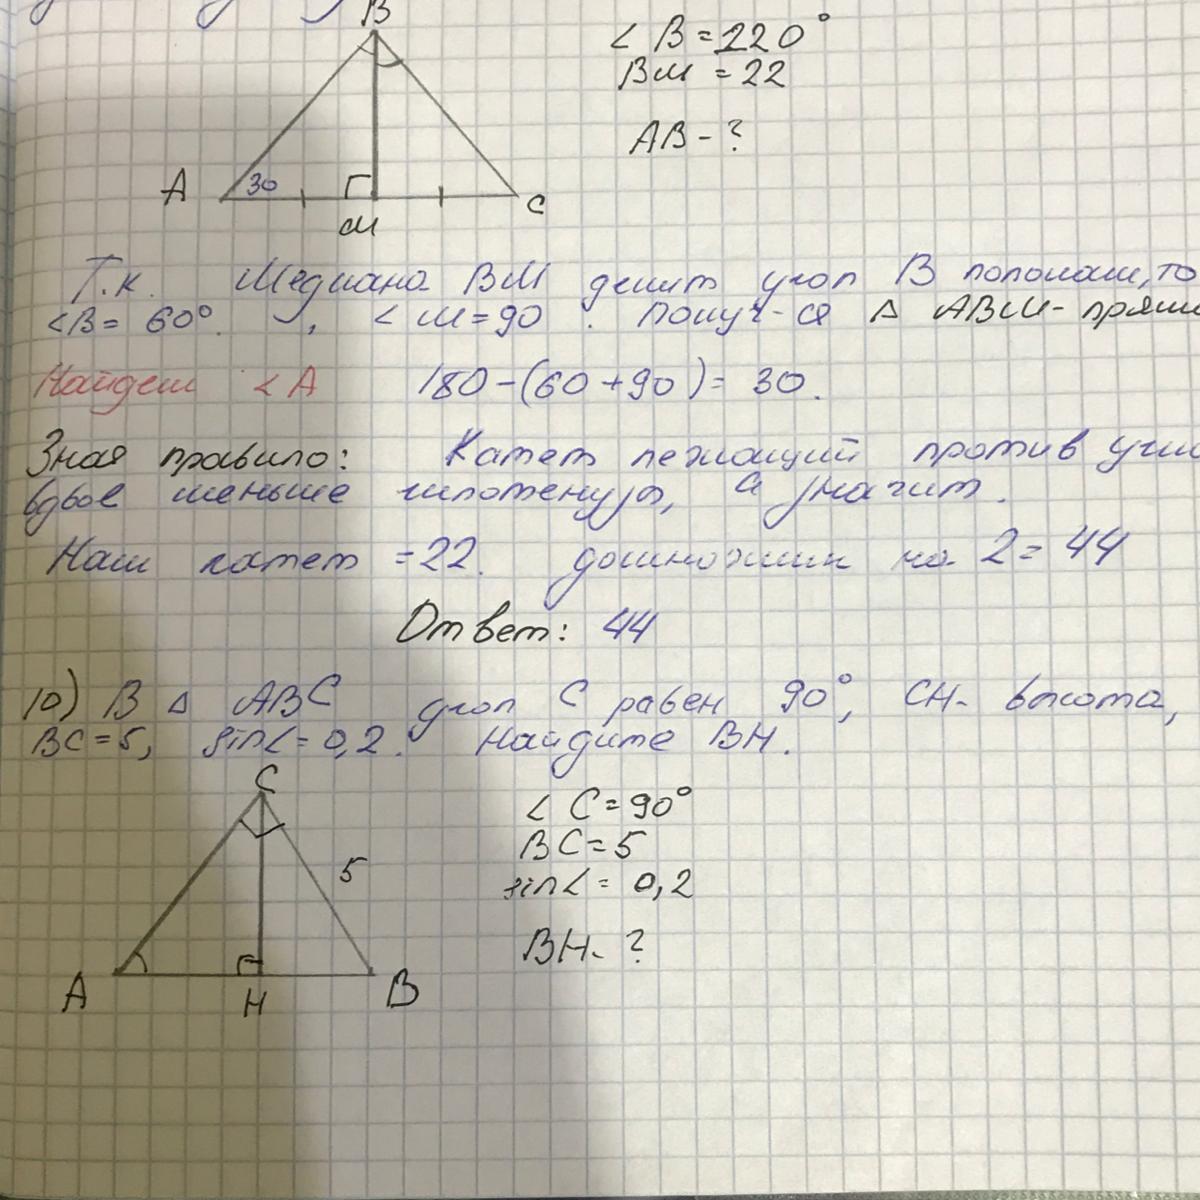 B
∠ B = 220°
BM = 22
AB - ?
A 30 M C
Т.к. Медиана BM делит угол B пополам, то
∠B = 60°. , ∠M = 90 . Получ-ся Δ ABM - прям
Найдем ∠A 180-(60+90)= 30.
Зная правило: Катет лежащий против угл
вдвое меньше гипотенузы, а значит.
Наш катет = 22. домножим на 2= 44
Ответ: 44
10) В Δ ABC угол C равен 90°, CH- высота,
BC=5, sin∠= 0,2. Найдите BH.
C
∠ C=90°
BC=5
5
sin∠= 0,2
BH- ?
A H B